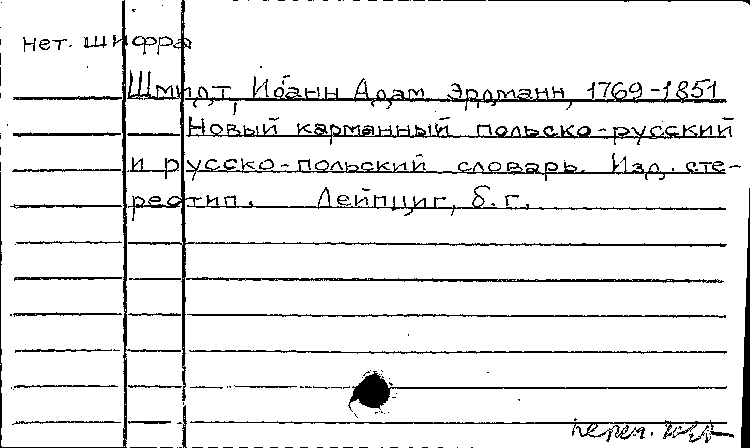 нет. шифра
Шмидт, Иоанн Адам Эрдманн, 1769-1851
Новый карманный польско-русский
и русско-польский словарь. Изд. сте-
реотип. Лейпциг, б.г.